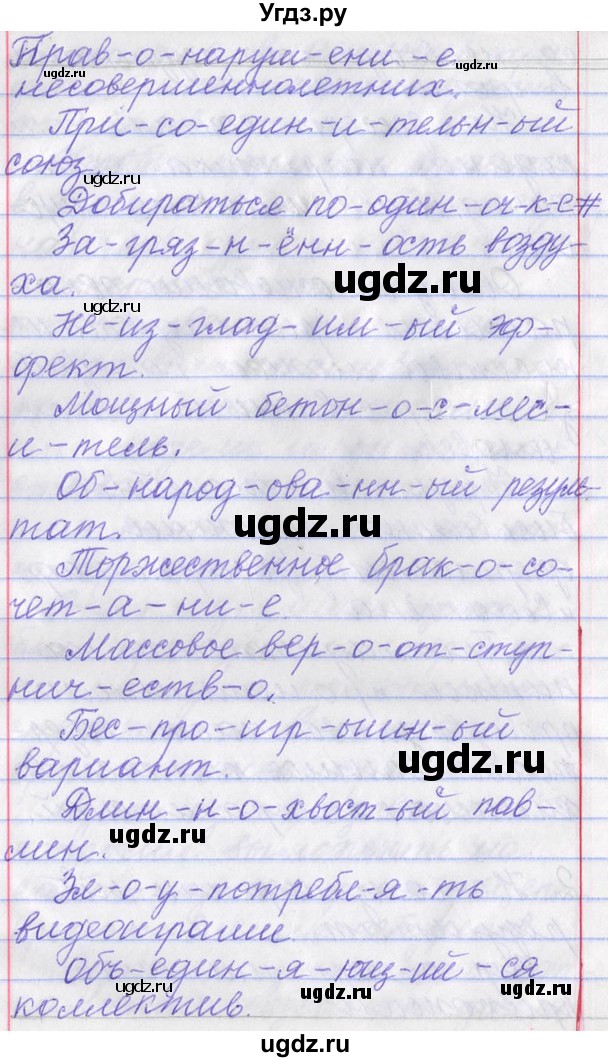 Угдз.ру
Прав-о-наруш-ени-е
несовершеннолетних.
При-со-един-и-тельн-ый
союз
угдз.ру
Добираться по-один-оч-к-е#
За-гряз-н-ённ-ость возду-
ха.
угдз.ру
Не-из-глад-им-ый эф-
фект.
Мощный бетон-о-с-мес-
и-тель.
Об-народ-ова-нн-ый резуль-
тат.
ugdz.ru
Торжественное брак-о-со-
чет-а-ни-е.
Массовое вер-о-от-ступ-
нич-еств-о.
Бес-про-игр-ышн-ый
вариант.
ugdz.ru
Длин-н-о-хвост-ый пав-
лин.
ugdz.ru
Зл-о-у-потребл-я-ть
видеоиграми.
Объ-един-я-ющ-ий-ся
коллектив.
Угдз.ру